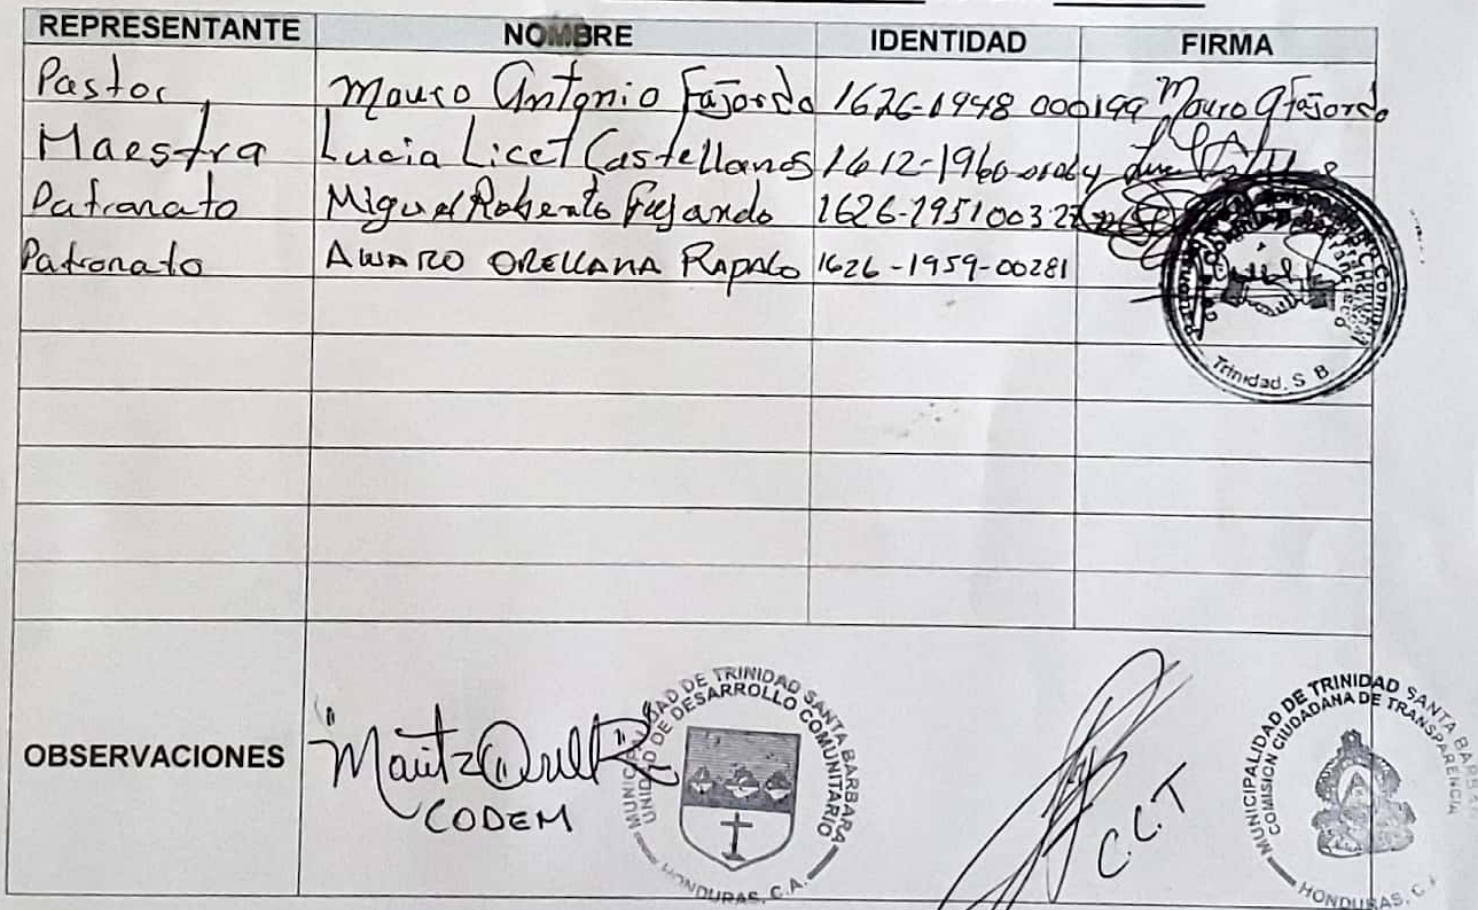 REPRESENTANTE NOMBRE IDENTIDAD FIRMA
Pastor Mauro Antonio Fajardo 1626-1948 000199 Mauro A Fajardo
Maestra Lucia Licet Castellanos 1612-1960
Patronato Miguel Roberto Fajardo 1626-1951003
Patronato ALVARO ORELLANA RAPALO 1626-1959-00281
Trinidad. S B
OBSERVACIONES
CODEM
MUNICIPALIDAD DE TRINIDAD SANTA BARBARA
UNIDAD DE DESARROLLO COMUNITARIO
HONDURAS, C.A.
C.C.T
MUNICIPALIDAD DE TRINIDAD SANTA BARBARA
COMISION CIUDADANA DE TRANSPARENCIA
HONDURAS, C.A